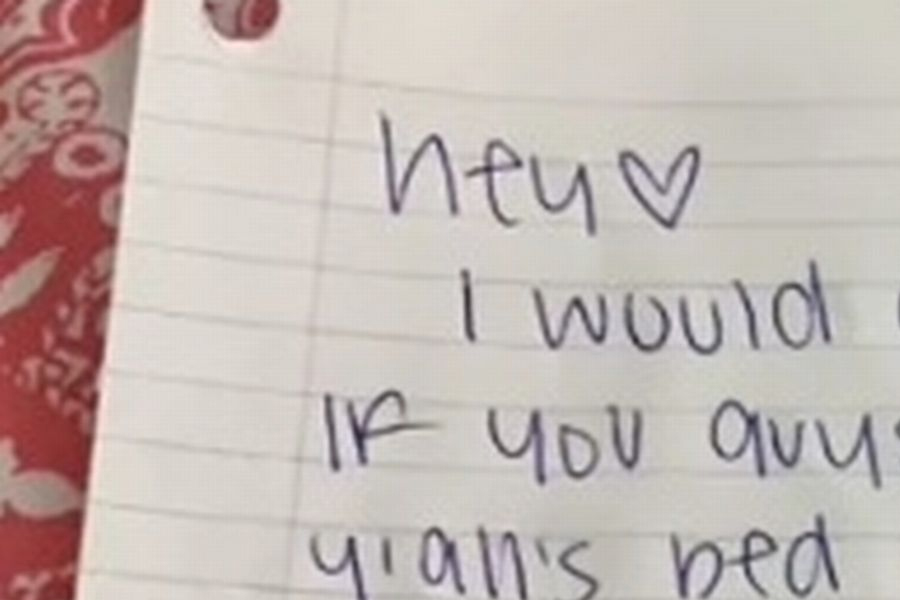 hey♡
I would
IF you guys
y'all's bed